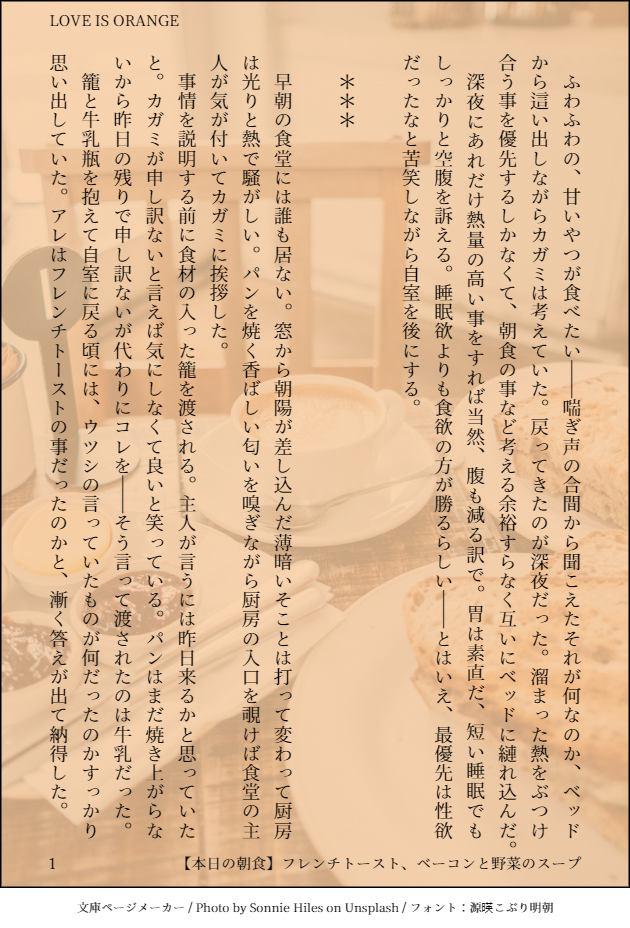 LOVE IS ORANGE
　ふわふわの、甘いやつが食べたい――喘ぎ声の合間から聞こえたそれが何なのか、ベッド
から這い出しながらカガミは考えていた。戻ってきたのが深夜だった。溜まった熱をぶつけ
合う事を優先するしかなくて、朝食の事など考える余裕すらなく互いにベッドに縺れ込んだ。
　深夜にあれだけ熱量の高い事をすれば当然、腹も減る訳で。胃は素直だ、短い睡眠でも
しっかりと空腹を訴える。睡眠欲よりも食欲の方が勝るらしい――とはいえ、最優先は性欲
だったなと苦笑しながら自室を後にする。
＊＊＊
　早朝の食堂には誰も居ない。窓から朝陽が差し込んだ薄暗いそことは打って変わって厨房
は光りと熱で騒がしい。パンを焼く香ばしい匂いを嗅ぎながら厨房の入口を覗けば食堂の主
人が気が付いてカガミに挨拶した。
　事情を説明する前に食材の入った籠を渡される。主人が言うには昨日来るかと思っていた
と。カガミが申し訳ないと言えば気にしなくて良いと笑っている。パンはまだ焼き上がらな
いから昨日の残りで申し訳ないが代わりにコレを――そう言って渡されたのは牛乳だった。
　籠と牛乳瓶を抱えて自室に戻る頃には、ウツシの言っていたものが何だったのかすっかり
思い出していた。アレはフレンチトーストの事だったのかと、漸く答えが出て納得した。
【本日の朝食】フレンチトースト、ベーコンと野菜のスープ
1
文庫ページメーカー / Photo by Sonnie Hiles on Unsplash / フォント：源暎こぶり明朝